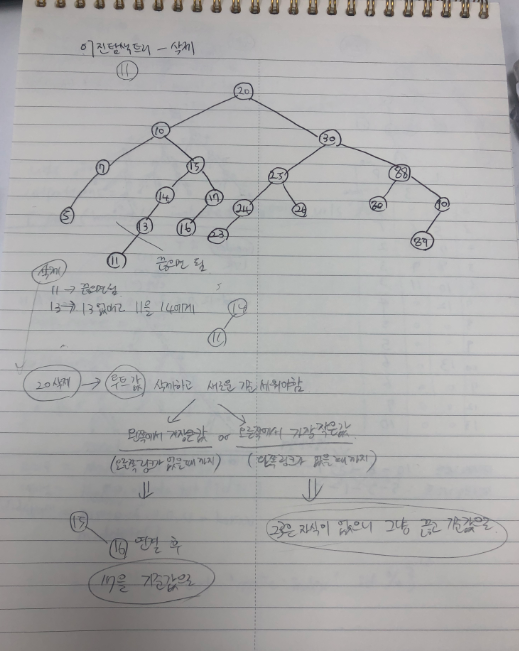 이진탐색트리 - 삭제
11
20
10 30
7 15 25 88
14 17 24 26 30 90
5 13 16 23 89
11
끊으면 됨
삭제
11 → 끊으면 됨
13 → 13 없애고 11을 14에게
14
11
20 삭제 → 루트값 삭제하고 새로운 기준 세워야함
왼쪽에서 가장큰값 or 오른쪽에서 가장 작은값
(오른쪽 링크가 없을때까지) (왼쪽 링크가 없을 때까지)
15
16 연결 후
17을 기준값으로
그들은 자식이 없으니 그냥 끊고 기준값으로